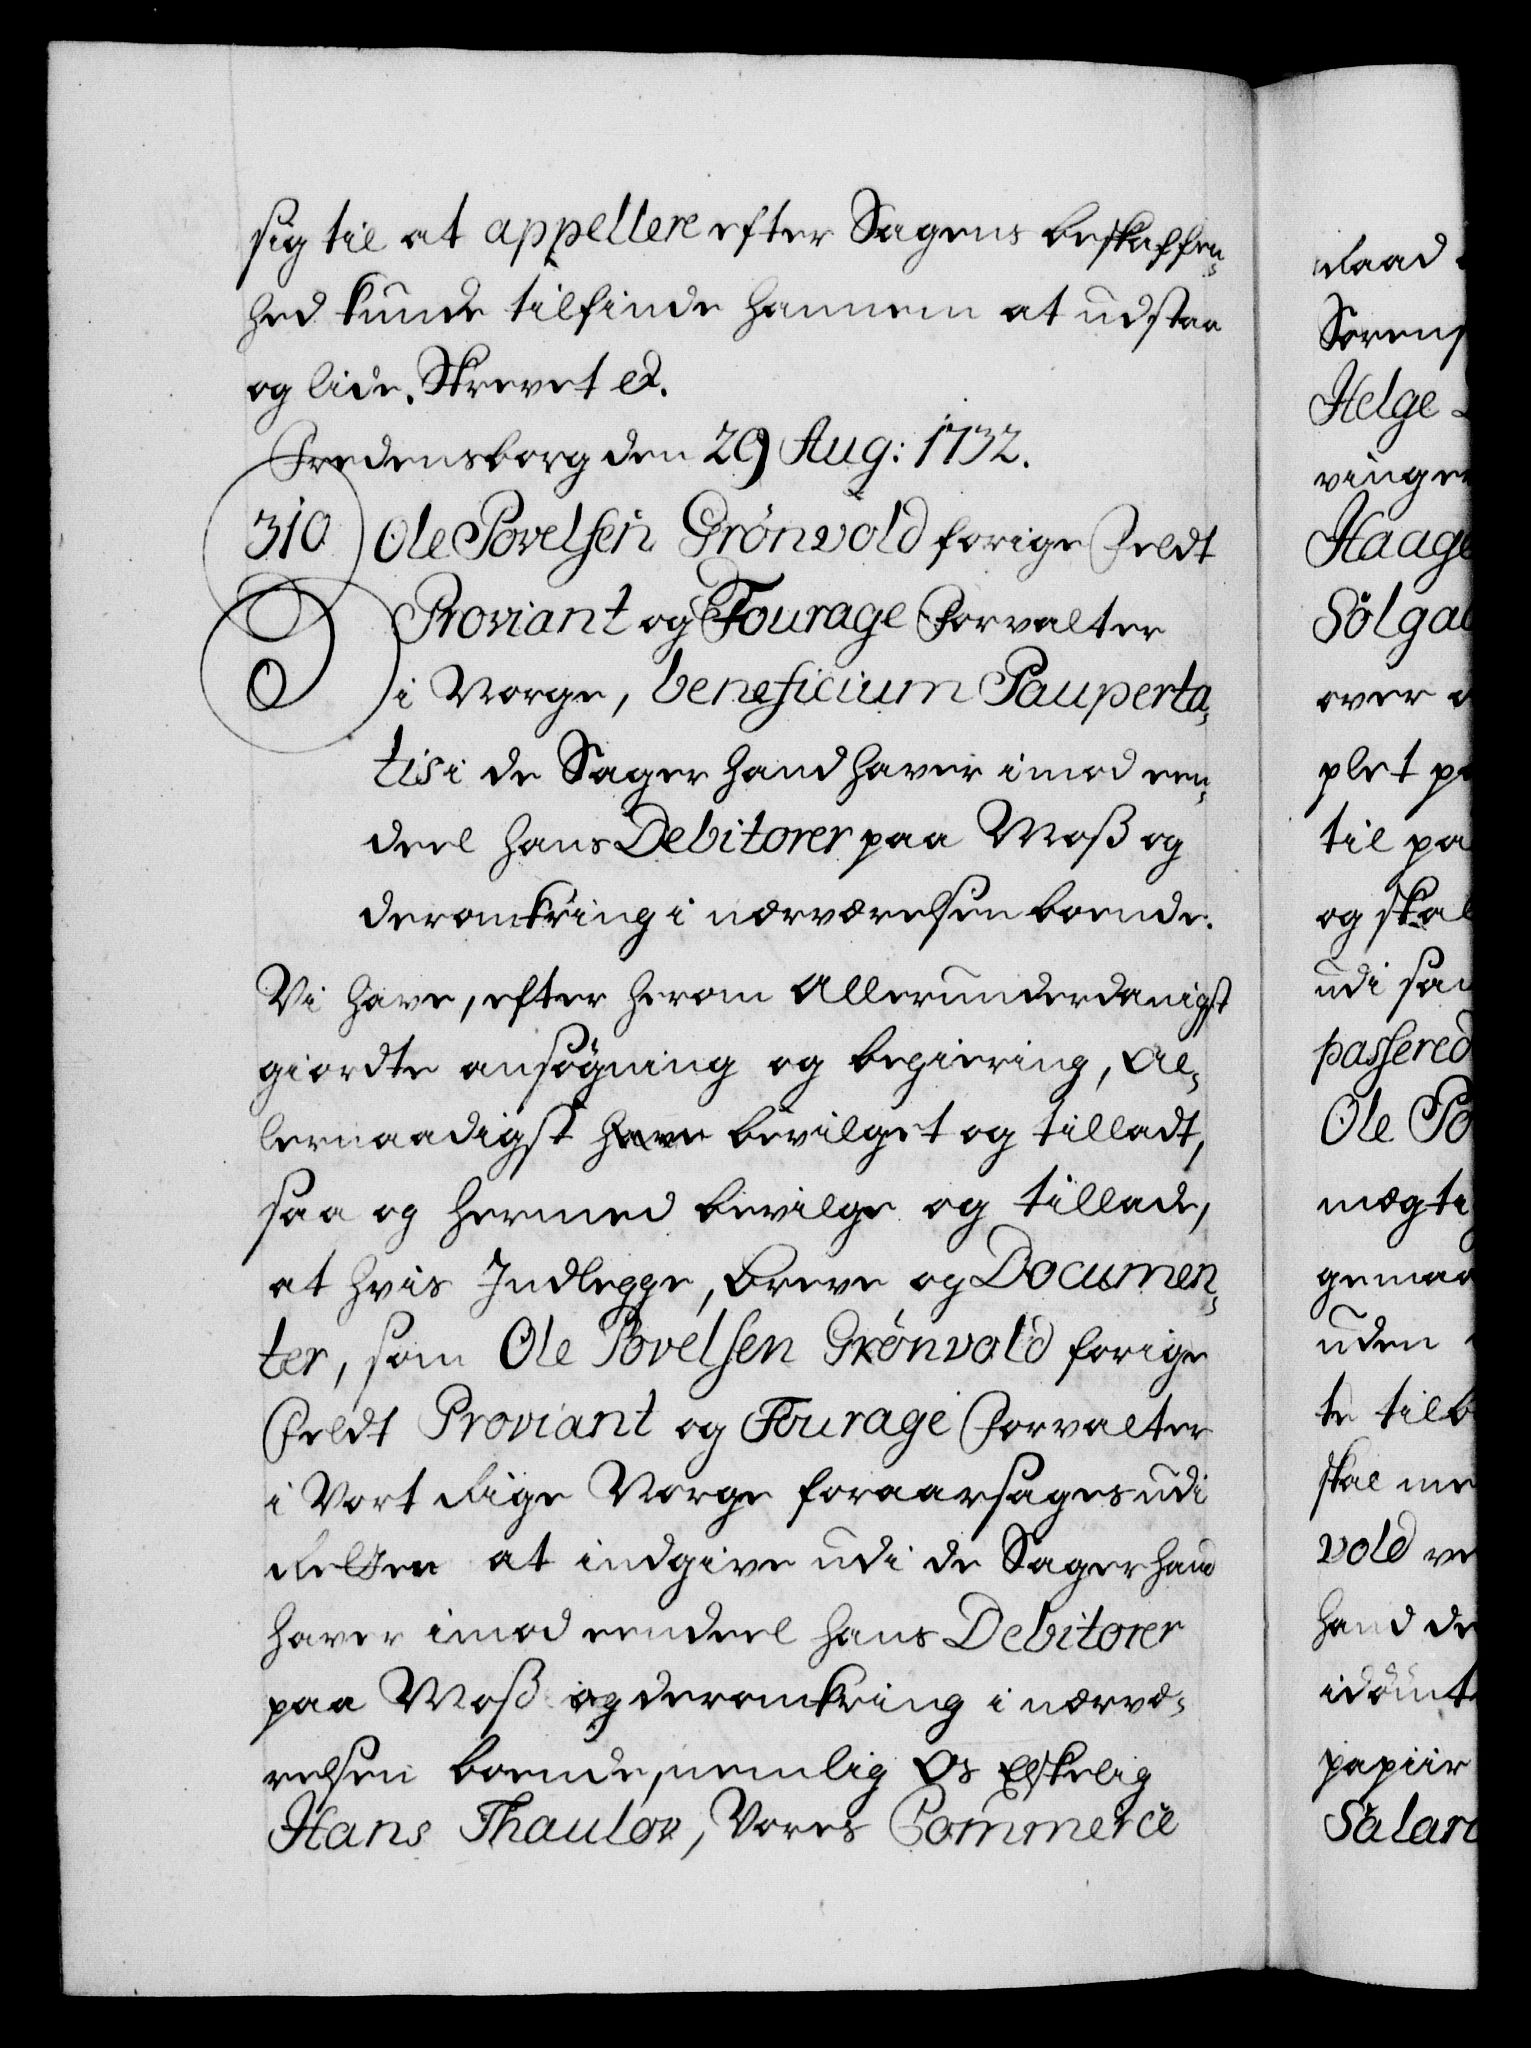 sig til at appellere efter Sagens beskaffen-
hed kunde tilfinde hannem at udstaa
og lide. Skrevet etc.
Fredensborg den 29 Aug: 1732.
310 Ole Povelsen Grönvold forige Feldt
Proviant og Fourage Forvalter
i Norge, beneficium Pauperta-
tis i de Sager hand haver imod een-
deel hans Debitorer paa Moß og
deromkring i nærværelsen boende.
Vi have, efter herom allerunderdanigst
giordte ansögning og begiering, al-
lernaadigst have bevilget og tilladt,
saa og hermed bevilge og tillade,
at hvis Indlegge, Breve og Documen-
ter, som Ole Povelsen Grönvold forige
Feldt Proviant og Fourage Forvalter
i Vort Rige Norge foraarsages udi
Retten at indgive udi de Sager hand
haver imod eendeel hans Debitorer
paa Moß og deromkring i nærvæ-
relsen boende, nemlig Os Elskelig
Hans Thaulov, Vores Commerce
Raad
Sörens
Helge
vinge
Haage
Sölga
over
plet p
til pa
og skal
udi sa
passered
Ole Po
mægti
gemaa
uden
te tilb
skal me
vold ve
hand de
idömt
papiir
Salar